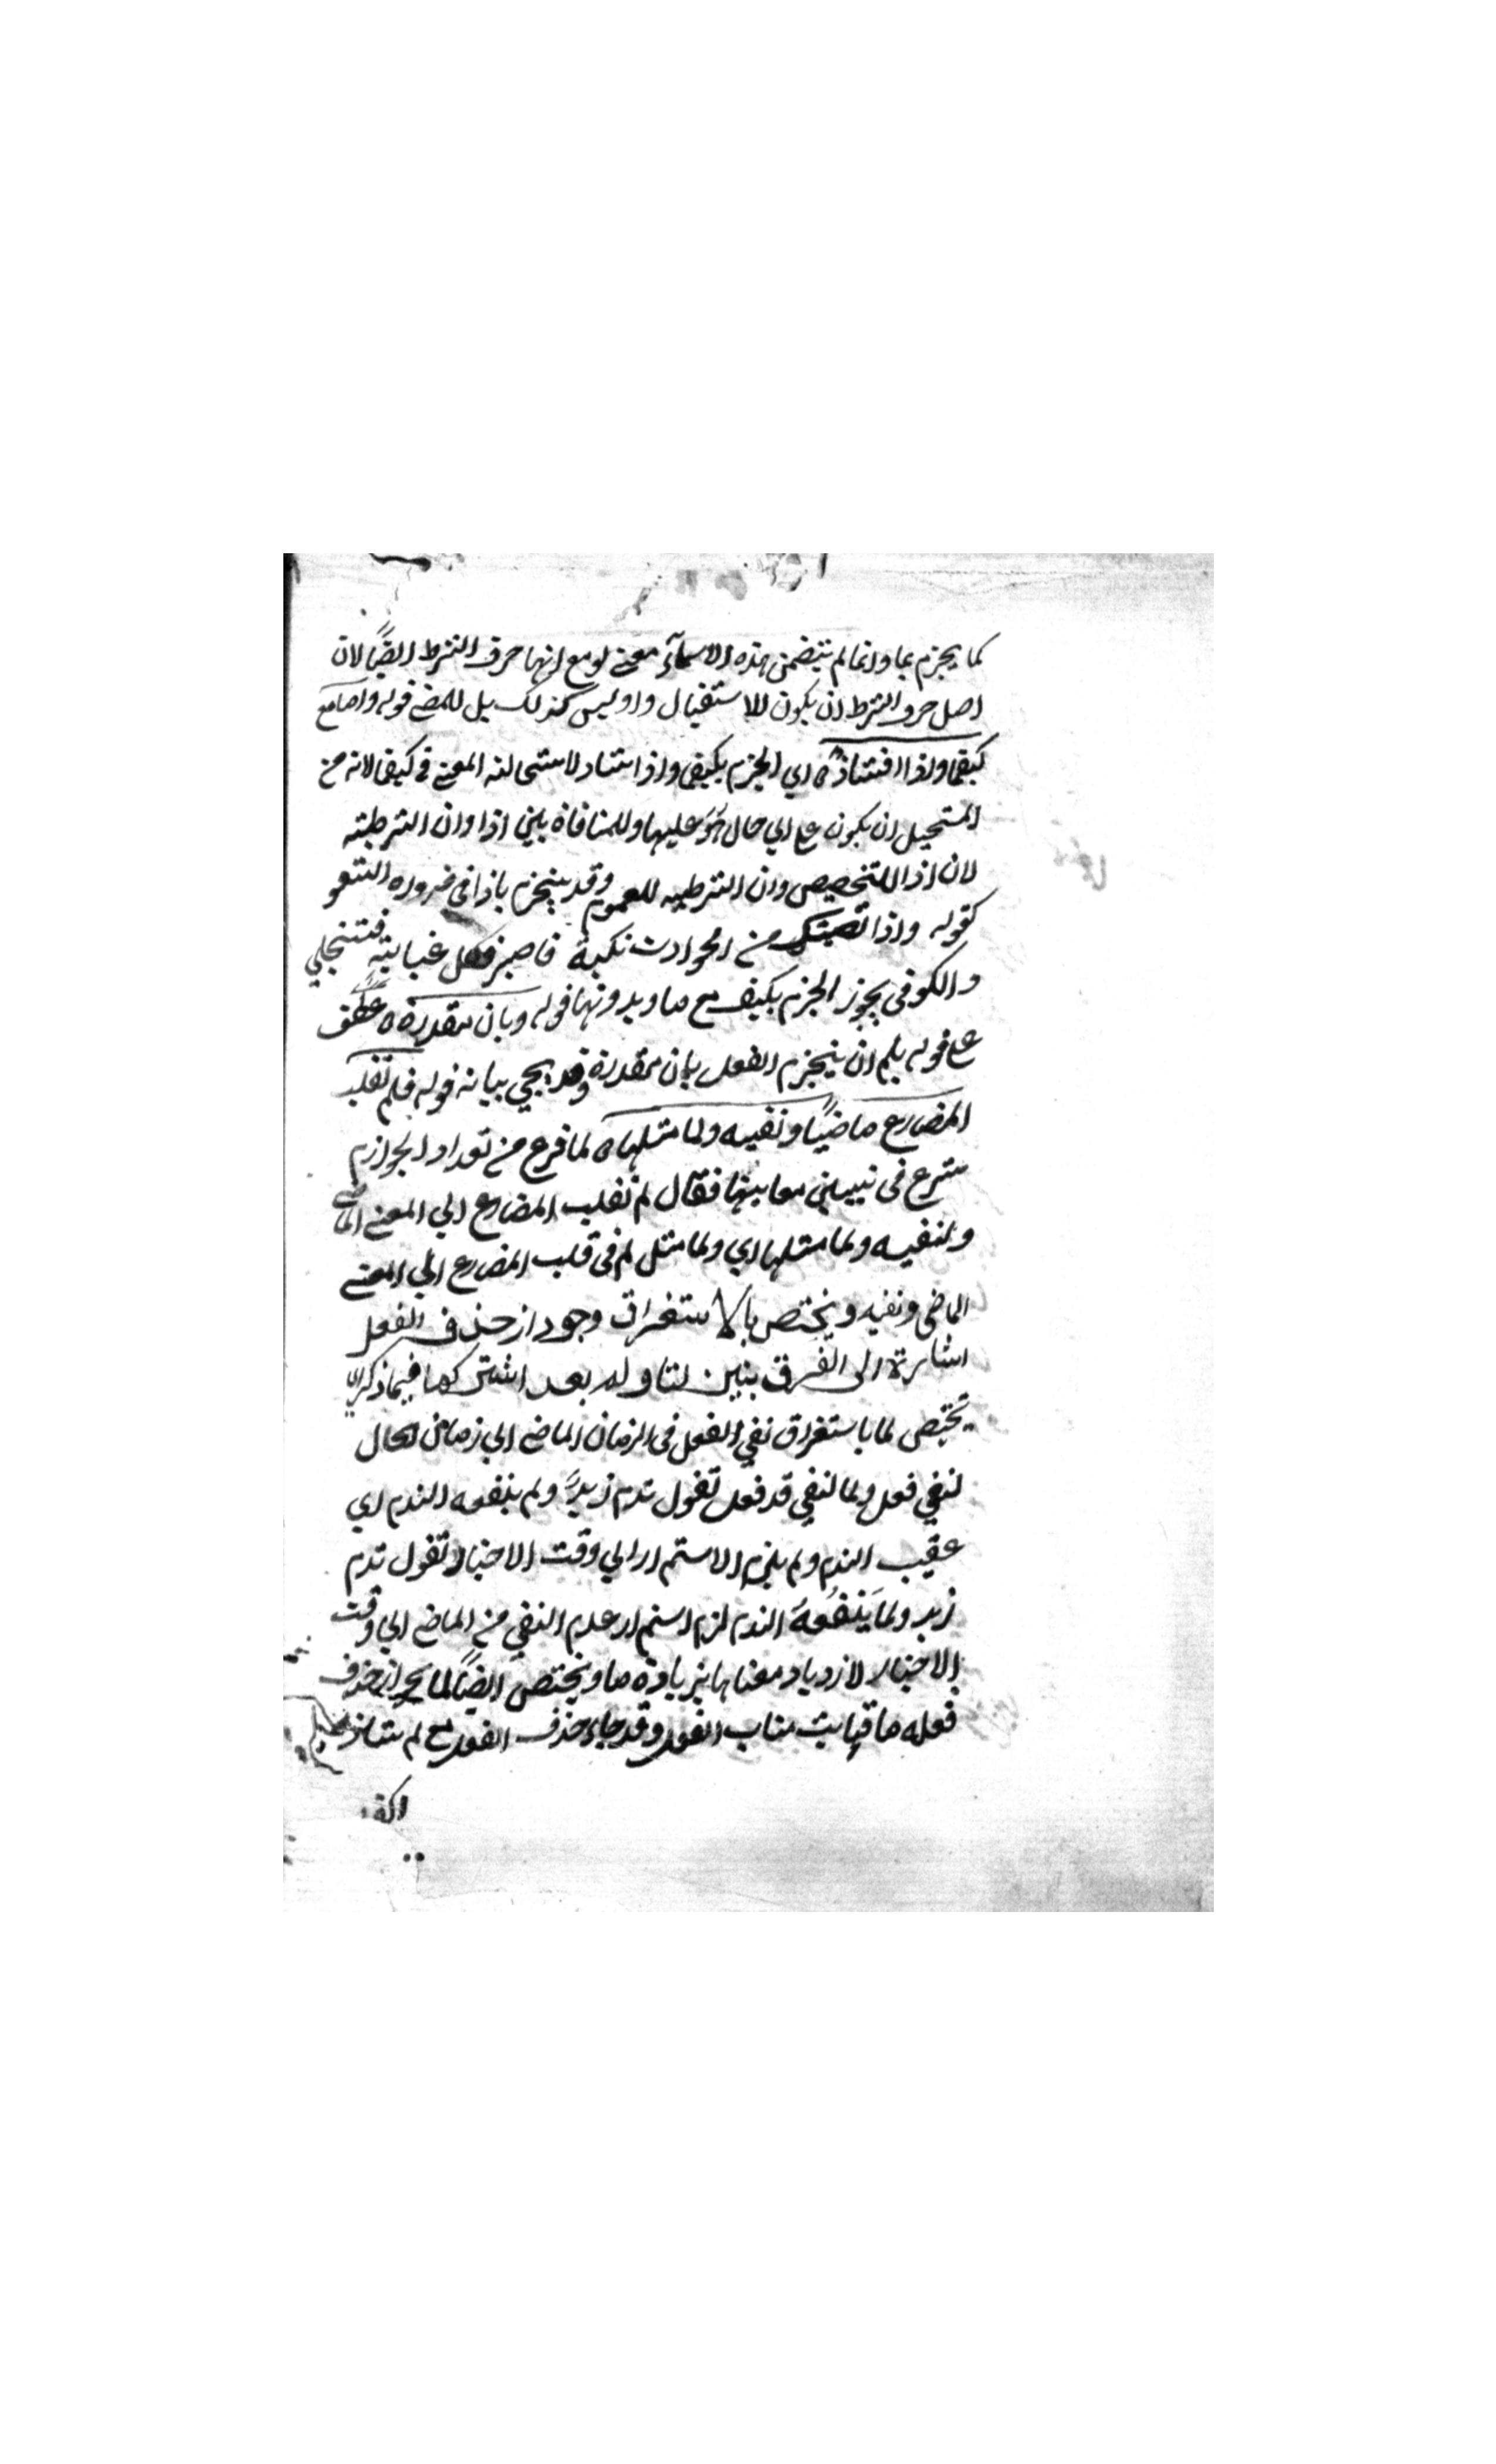 كما يجزم بما وانما لم يتضمن هذه الاسماء معنى لو مع انها حرف الشرط ايضًا لان
اصل حرف الشرط ان يكون للاستقبال ولو ليس كذلك بل للمضى قوله واما مع
كيفما واذا فشاذ ه اي الجزم بكيفما واذا شاذ لاستحالة المعنى فى كيفما لانه من
المستحيل ان يكون على اي حال هو عليها وللمنافاة بين اذا وان الشرطية
لان اذا للتخصيص وان الشرطيه للعموم وقد ينجزم باذا فى ضروره الشعر
كقوله واذا تصبك من الحوادث نكبة فاصبر فكل غيابته فتنجلي
والكوفى يجوز الجزم بكيف مع ما وبدونها قوله وبان مقدرة ه عطف
على قوله بلم ان ينجزم الفعل بان مقدرة وقد يجي بيانه قوله فلم تقلب
المضارع ماضيًا ونفيه ولما مثلها ه لما فرغ من تعداد الجوازم
شرع فى تبيين معانيها فقال لم تقلب المضارع الي المعنى الماضى
وتنفيه ولما مثلها اي ولما مثل لم فى قلب المضارع الي المعنى
الماضى ونفيه ويختص بالاستغراق وجواز حذف الفعل
اشارة الى الفرق بين لما ولم بعد اشتراكهما فيما ذكر اي
يختص لما باستغراق نفي الفعل فى الزمان الماضى الي زمان الحال
لنفي فعل ولما لنفي قد فعل تقول ندم زيدٌ ولم ينفعه الندم اي
عقيب الندم ولم يلزم الاستمرار الي وقت الاخبار تقول ندم
زيد ولما ينفعه الندم لزم استمرار عدم النفي من الماضى الي وقت
الاخبار لازدياد معناها بزيادة ما ويختص ايضًا لما بجواز حذف
فعله ما قبابت مناب الفعل وقد جاء حذف الفعل مع لم شاذ